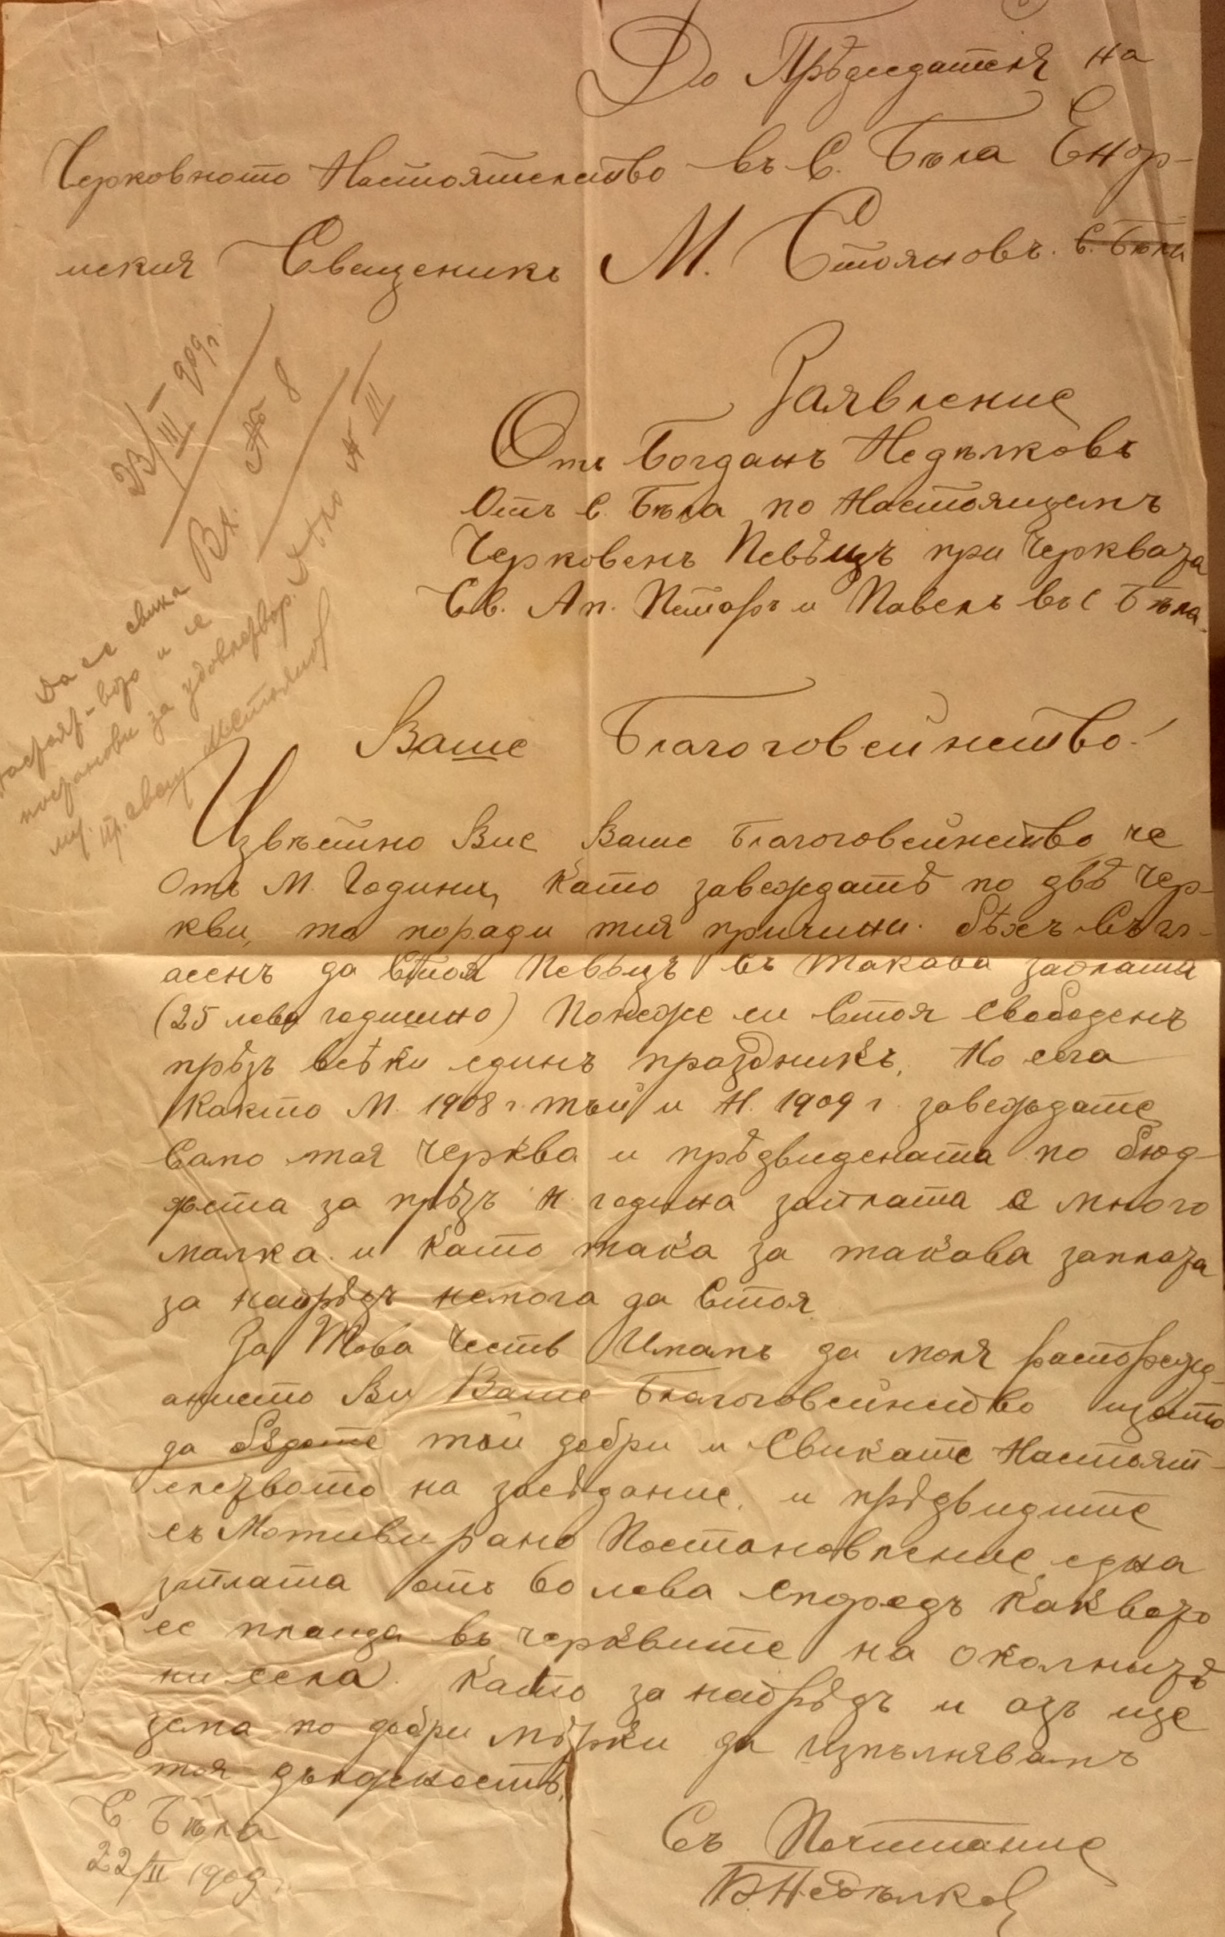 До Прѣдседателя на
Черковното Настоятелство въ с. Бѣла Енор-
ийския Свещеникъ М. Стояновъ. с. Бѣла
Заявление
Отъ Богданъ Недѣлковъ
Отъ с. Бѣла по Настоящемъ
Черковенъ Певѣцъ при Черквата
Св. Ап. Петъръ и Павелъ въ с Бѣла.
23/III 909 г.
Вх. № 8
Дѣло № III
Да се свика
настоят-вото и се
постанови за удовлетвор.
му. Пр. свещ. МСтоянов
Ваше Благоговейнство!
Извѣстно Вие Ваше Благоговейнство че
Отъ М. Година, като завеждатѣ по двѣ чер-
кви, то поради тия причини. бѣхъ съгл-
асенъ да стоя Певѣцъ въ такава заплата
(25 лева годишно) Понеже си стоя свободенъ
прѣзъ всѣки единъ праздникъ, Но сега
както М. 1908 г. тъй и Н. 1909 г. завеждате
само тая черква и прѣдвидената по бюд-
жета за прѣзъ Н година заплата е много
малка и като така за такава заплата
за напрѣдъ немога да стоя
За Това Честь Имамъ да моля распореж-
анието Ви Ваше Благоговейнство щото
да бѫдете тъй добри и свикате Настоят-
елството на засѣдание, и прѣдвидите
съ Мотивирано Постановление една
заплата отъ 60 лева според каквото
се плаща въ черквите на околнитѣ
ни села. Като за напрѣдъ и азъ ще
зема по добри мѣрки да изпълнявамъ
тая длъжность.
С. Бѣла
22/II 1909 г.
Съ Почитание
Б. Недѣлков